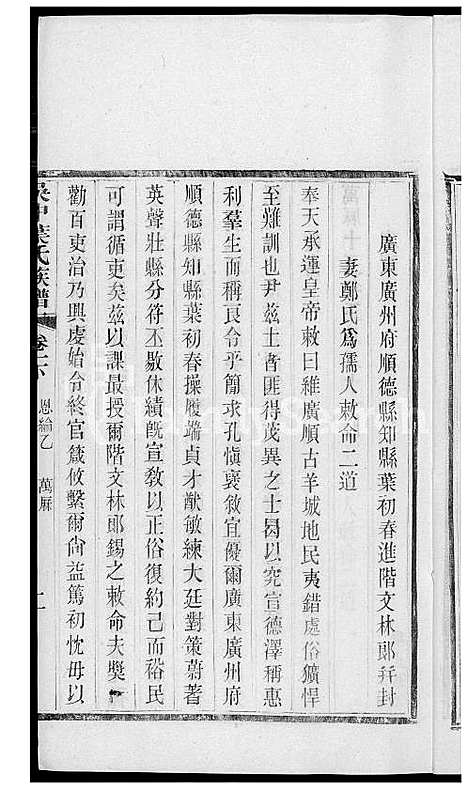 廣東廣州府順德縣知縣葉初春進階文林郎幷封
妻鄭氏爲孺人敕命二道
奉天承運皇帝敕曰維廣順古羊城地民夷錯處俗獷悍
至難訓也尹茲土者匪得茂異之士曷以究宣德澤稱惠
利羣生而稱良令乎簡求孔愼褒敘宜優爾廣東廣州府
順德縣知縣葉初春操履端貞才猷敏練大廷對策蔚著
英聲壯縣分符丕敭休績旣宣敎以正俗復約己而裕民
可謂循吏矣茲以課最授爾階文林郎錫之敕命夫獎
勸百吏治乃興虔始令終官箴攸繫爾尙益篤初忱毋以
吳中葉氏族譜 卷二六 恩綸乙 萬厤